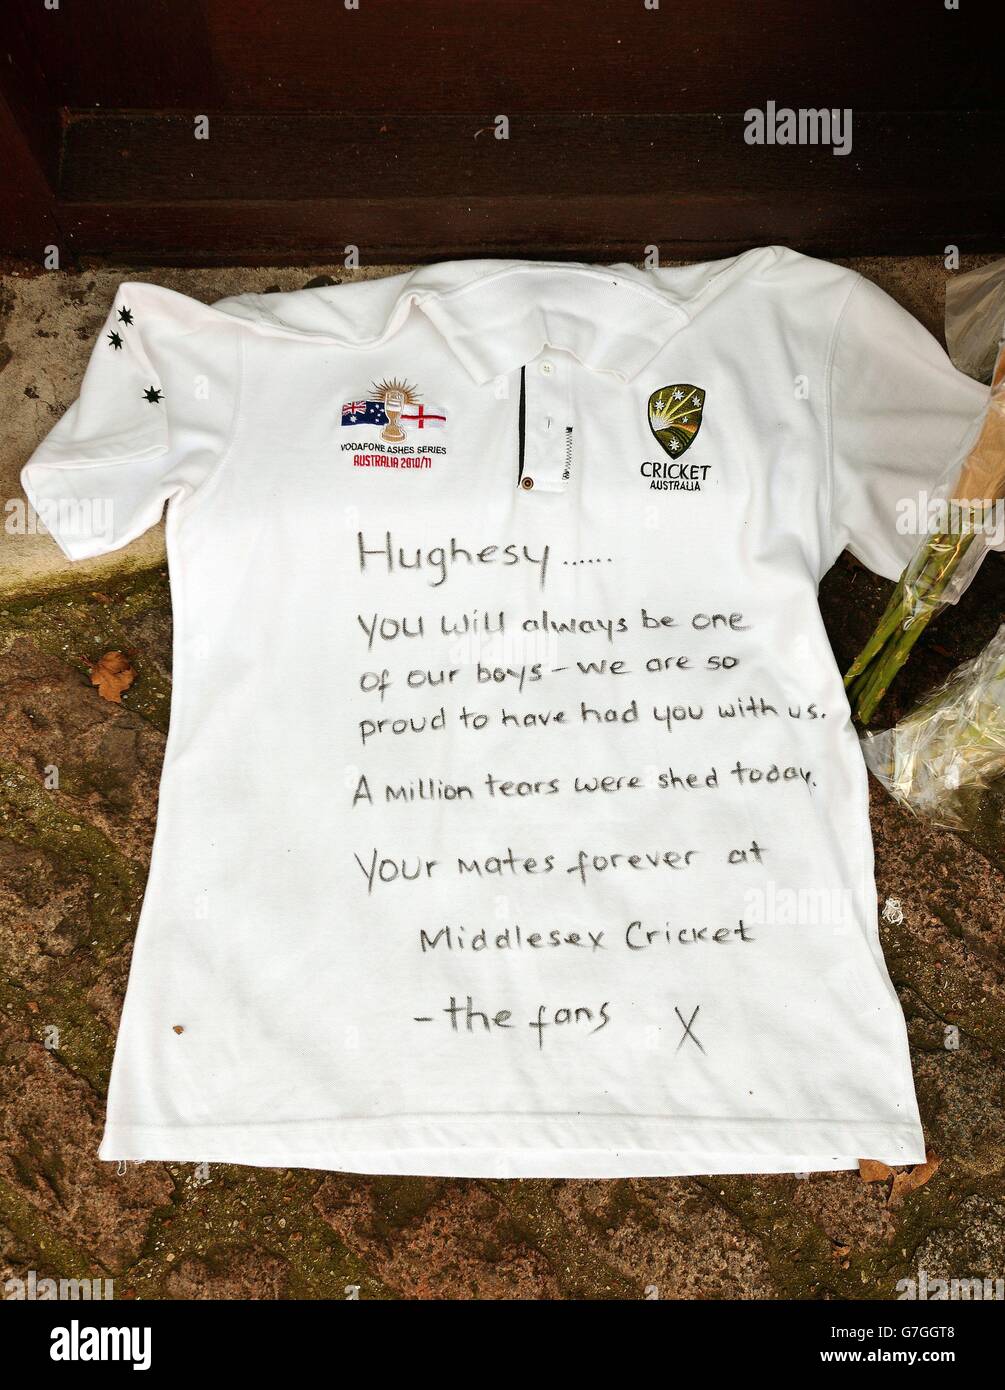 alamy
VODAFONE ASHES SERIES
AUSTRALIA 2010/11
CRICKET
AUSTRALIA
Hughesy ......
You will always be one
of our boys - we are so
proud to have had you with us.
A million tears were shed today.
Your mates forever at
Middlesex Cricket
- the fans X
a
alamy
Image ID: G7GGT8
www.alamy.com